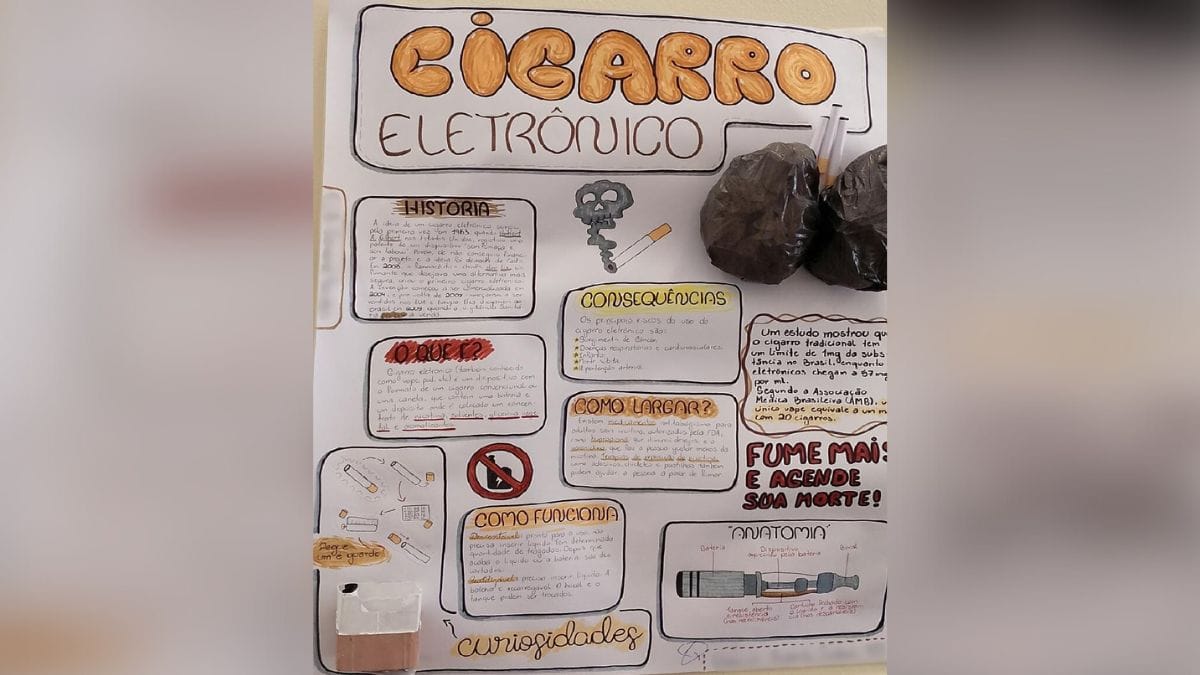 CIGARRO
ELETRÔNICO
HISTORIA
A ideia de um cigarro eletrônico surgiu
pela primeira vez em 1963, quando
A. Gilbert, nos Estados Unidos, registrou uma
patente de um dispositivo "sem fumaça e
sem tabaco". Porém, ele não conseguiu financi-
ar o projeto e a ideia foi
Em 2003, o farmacêutico chinês
fumante que desejava uma alternativa mais
segura, criou o primeiro cigarro eletrônico.
A invenção começou a ser comercializada em
2004, e por volta de 2007, começaram a ser
vendidas nos EUA e Europa.
Brasil em 2009, quando a
a venda.
O QUE É?
Cigarro eletrônico (também conhecido
como vape, pod, etc) é um dispositivo com
o formato de um cigarro convencional ou
uma caneta, que contém uma bateria e
um depósito onde é colocado um concen-
trado de nicotina, solventes, glicerina,
e aromatizantes.
CONSEQUÊNCIAS
Os principais riscos do uso do
cigarro eletrônico são:
Surgimento de Câncer
Doenças respiratórias e cardiovasculares
Infarto
Morte súbita
Hipertenção arterial
Um estudo mostrou qu
o cigarro tradicional tem
um limite de 1mg da subs
tância no Brasil, enquanto
eletrônicos chegam a 57 m
por mL.
Segundo a Associação
Médica Brasileira (AMB), u
único vape equivale a um m
com 20 cigarros.
COMO LARGAR?
Existem medicamentos antitabagismo para
adultos sem nicotina, autorizados pela FDA,
como bupropiona que diminui desejos e a
vareniclina que faz a pessoa gostar menos da
nicotina. Terapias de reposição de nicotina
como adesivos, chicletes e pastilhas também
podem ajudar a pessoa a parar de fumar.
FUME MAIS
E AGENDE
SUA MORTE!
COMO FUNCIONA
Descartável: pronto para o uso, não
precisa inserir líquido. Tem determinada
quantidade de tragadas. Depois que
acaba o líquido ou a bateria são des-
cartados.
precisa inserir líquido. A
bateria é recarregável. O bocal e o
tanque podem ser trocados.
Pegue
um e guarde
curiosidades
"ANATOMIA"
Bateria
Dispositivo
aquecido pela bateria
Bocal
Tanque aberto
e resistência
(nos recarregáveis)
Cartucho fechado com
o líquido e a resistên-
cia (nos descartáveis)